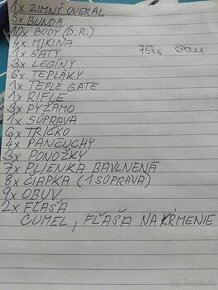 1x ZIMNÝ OVERAL
3x BUNDA
10x BODY (D.R.)
4x MIKINA
1x ŠATY
3x LEGÍNY
6x TEPLÁKY
1x TEPLE GATE
1x RIFLE
3x PYŽAMO
1x SÚPRAVA
6x TRIČKO
4x PANČUCHY
3x PONOŽKY
7x PLIENKA BAVLNENÁ
8x ČIAPKA (1 SÚPRAVA)
9x OBUV
2x FĽAŠA
CUMEL, FĽAŠA NA KŔMENIE
75ks SPOLU